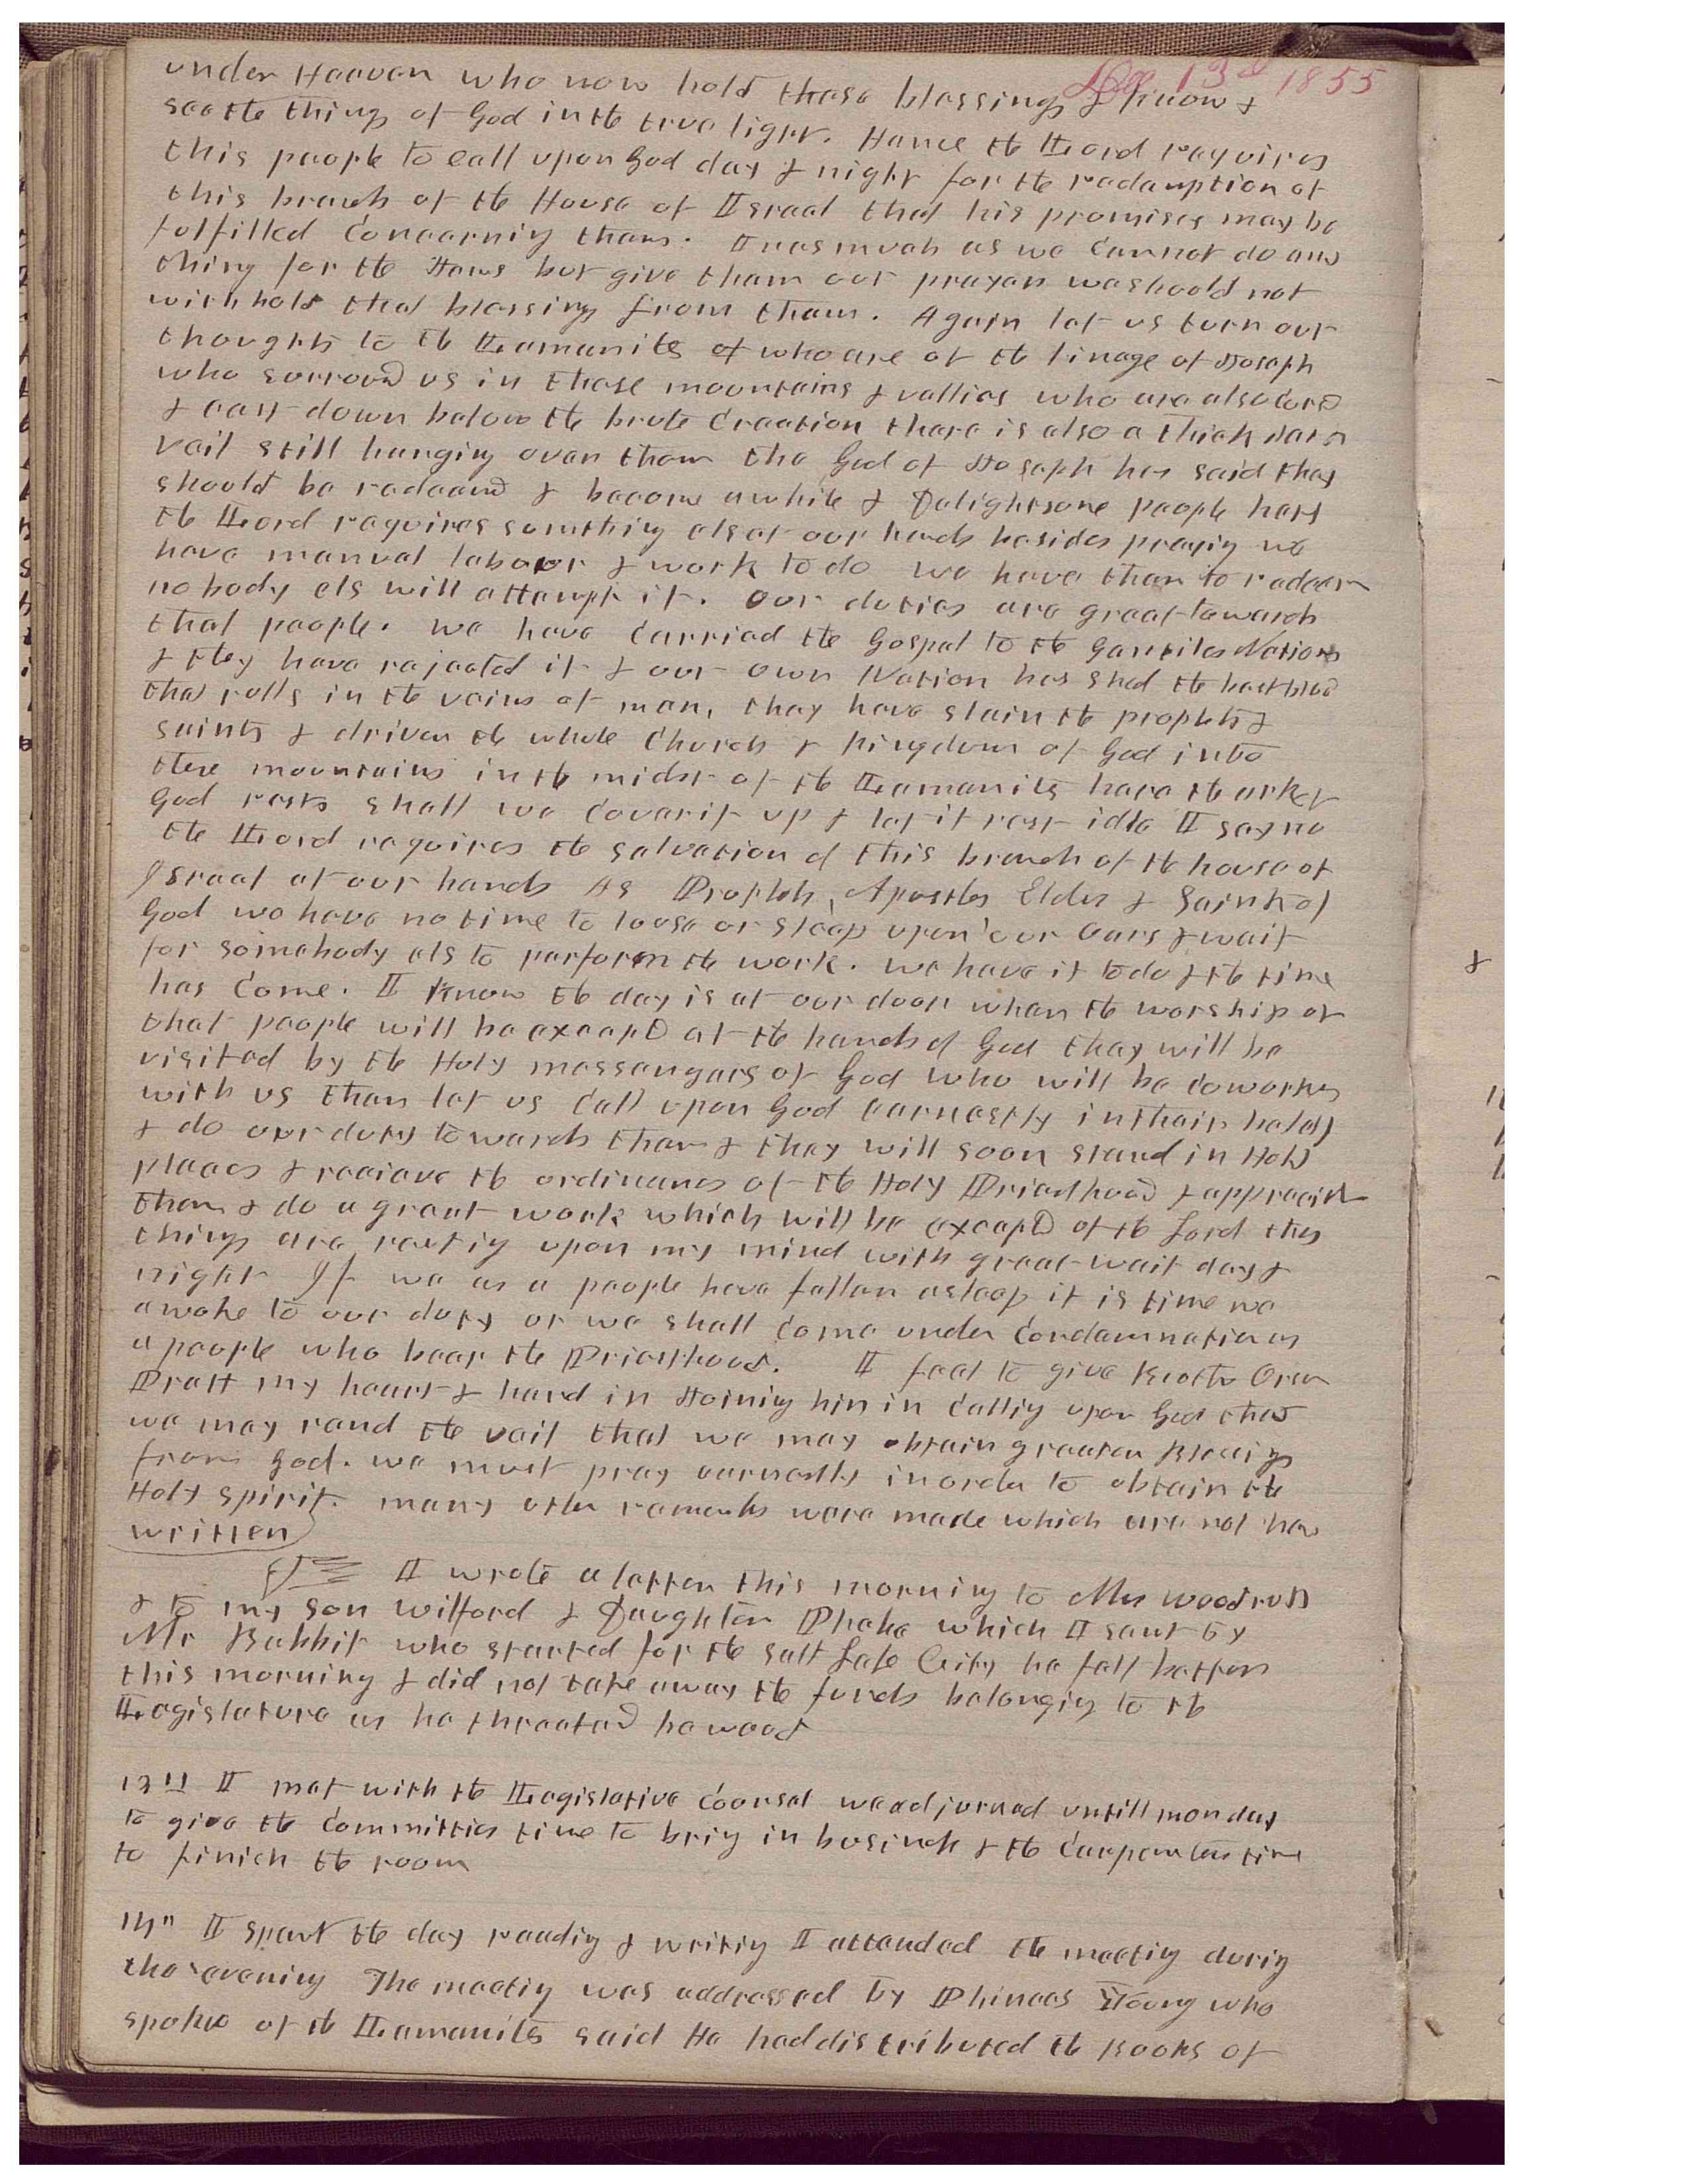 Dec 13d 1855
under Heaven who now hold those blessings & know &
see the things of God in the true light. Hence the Lord requires
this people to call upon God day & night for the redemption of
this branch of the House of Israel that his promises may be
fulfilled Concerning them. Inasmuch as we Cannot do any
thing for the Jews but give them our prayers we should not
withhold that blessing from them. Again let us turn our
thoughts to the Lamanites of who are of the linage of Joseph
who surround us in these mountains & vallies who are also cursed
& cast down below the brute Creation there is also a thick dark
vail still hanging over them the God of Joseph has said they
should be redeemed & become a white & Delightsome people here
the Lord requires sumthing els at our hands besides praying we
have manual labour & work to do we have them to redeem
no body els will attempt it. Our duties are great towards
that people. We have Carried the Gospel to the Gentiles Nations
& they have rejected it & our own Nation has shed the best blood
that rolls in the veins of man, they have slain the prophets &
saints & driven the whole Church & Kingdom of God into
these mountains in the midst of the Lamanites here the ark of
God rests shall we Cover it up & let it rest idle I say no
the Lord requires the salvation of this branch of the house of
Israel at our hands As Prophets, Apostles Elders & Saints of
God we have no time to loose or sleep upon our oars & wait
for somebody els to perform the work. We have it to do & the time
has Come. I know the day is at our doors when the worship of
that people will be except at the hands of God they will be
visited by the Holy messengers of God who will be coworkers
with us then let us Call upon God earnestly in their behalf
& do our duty towards them & they will soon stand in Holy
places & receive the ordinances of the Holy Priesthood & appreciate
them & do a great work which will be except of the Lord these
things are resting upon my mind with great wait day &
night If we as a people have fallen asleep it is time we
awoke to our duty or we shall come under Condemnation as
a people who bear the Priesthood. I feel to give Brother Orson
Pratt my heart & hand in Joining him in Calling upon God that
we may rend the vail that we may obtain greater Blessings
from God. we must pray earnestly in order to obtain the
Holy spirit. many other remarks were made which are not here
written
I wrote a letter this morning to Mrs Woodruff
& to my son Wilford & Daughter Phebe which I sent by
Mr Babbit who started for the Salt Lake City he felt better
this morning & did not take away the funds belonging to the
Legislature as he threatened he would
13th I met with the Legislative Counsel we adjourned untill monday
to give the Committies time to bring in business & the Carpenters time
to finish the room
14th I spent the day reading & writing I attended the meeting during
the evening The meeting was addressed by Phineas Young who
spoke of the Lamanites said He had distributed the Books of